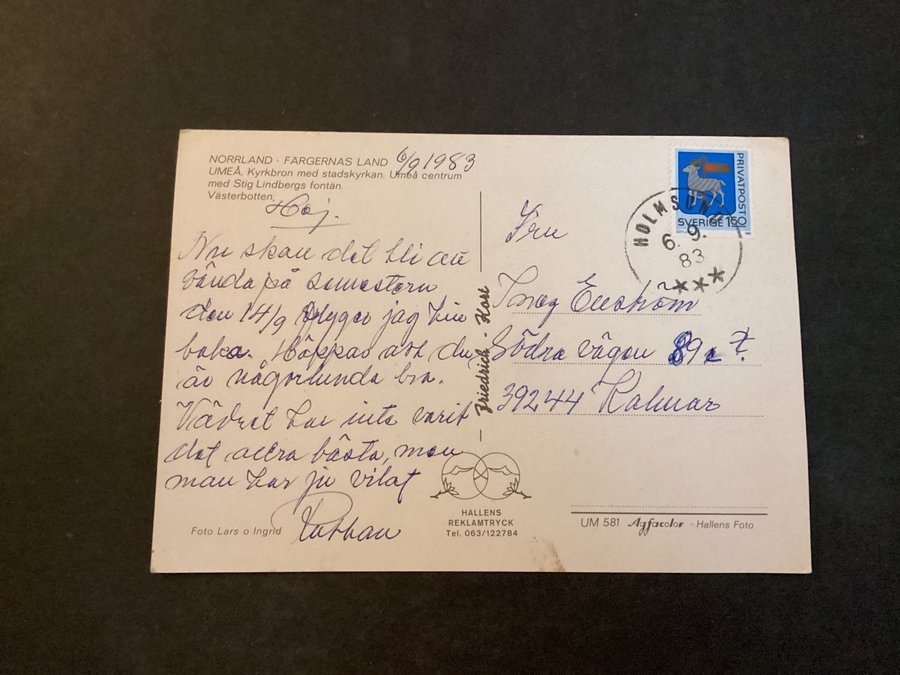 NORRLAND · FÄRGERNAS LAND 6/9 1983
UMEÅ. Kyrkbron med stadskyrkan. Umeå centrum
med Stig Lindbergs fontän.
Västerbotten.
Hej.
Nu skall det bli en
vända på semestern
den 14/9 flyger jag
Hoppas att du
är någorlunda bra.
Vädret har inte varit
det allra bästa, men
man har ju vilat
Foto Lars o Ingrid
Friedrich - Kort
HALLENS
REKLAMTRYCK
Tel. 063/122784
PRIVATPOST
SVERIGE 150
HOLMSUND
6. 9.
83
Fru
Södra vägen 89
39244 Kalmar
UM 581 Agfacolor - Hallens Foto